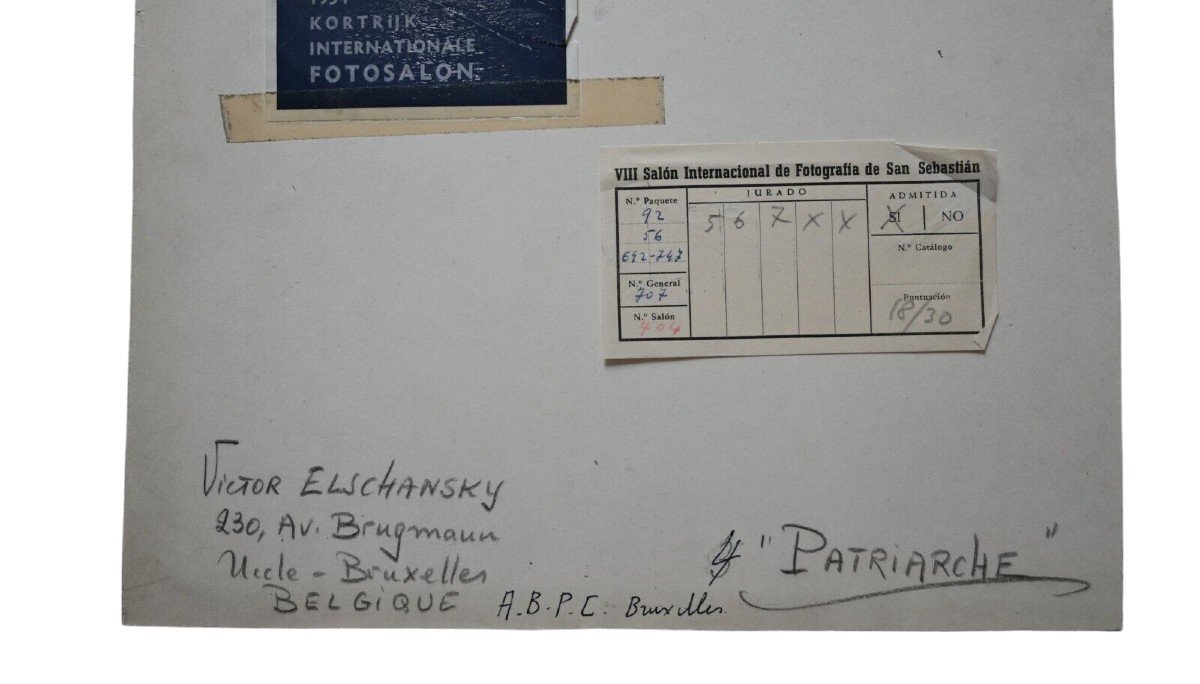 KORTRIJK
INTERNATIONALE
FOTOSALON
VIII Salón Internacional de Fotografía de San Sebastián
N.º Paquete
92
56
692-747
N.º General
707
N.º Salón
704
JURADO
5 6 7 X X
ADMITIDA
SI | NO
N.º Catálogo
Puntuación
18/30
VICTOR ELSCHANSKY
230, Av. Brugmann
Uccle - Bruxelles
BELGIQUE
A.B.P.C. Bruxelles.
"PATRIARCHE"